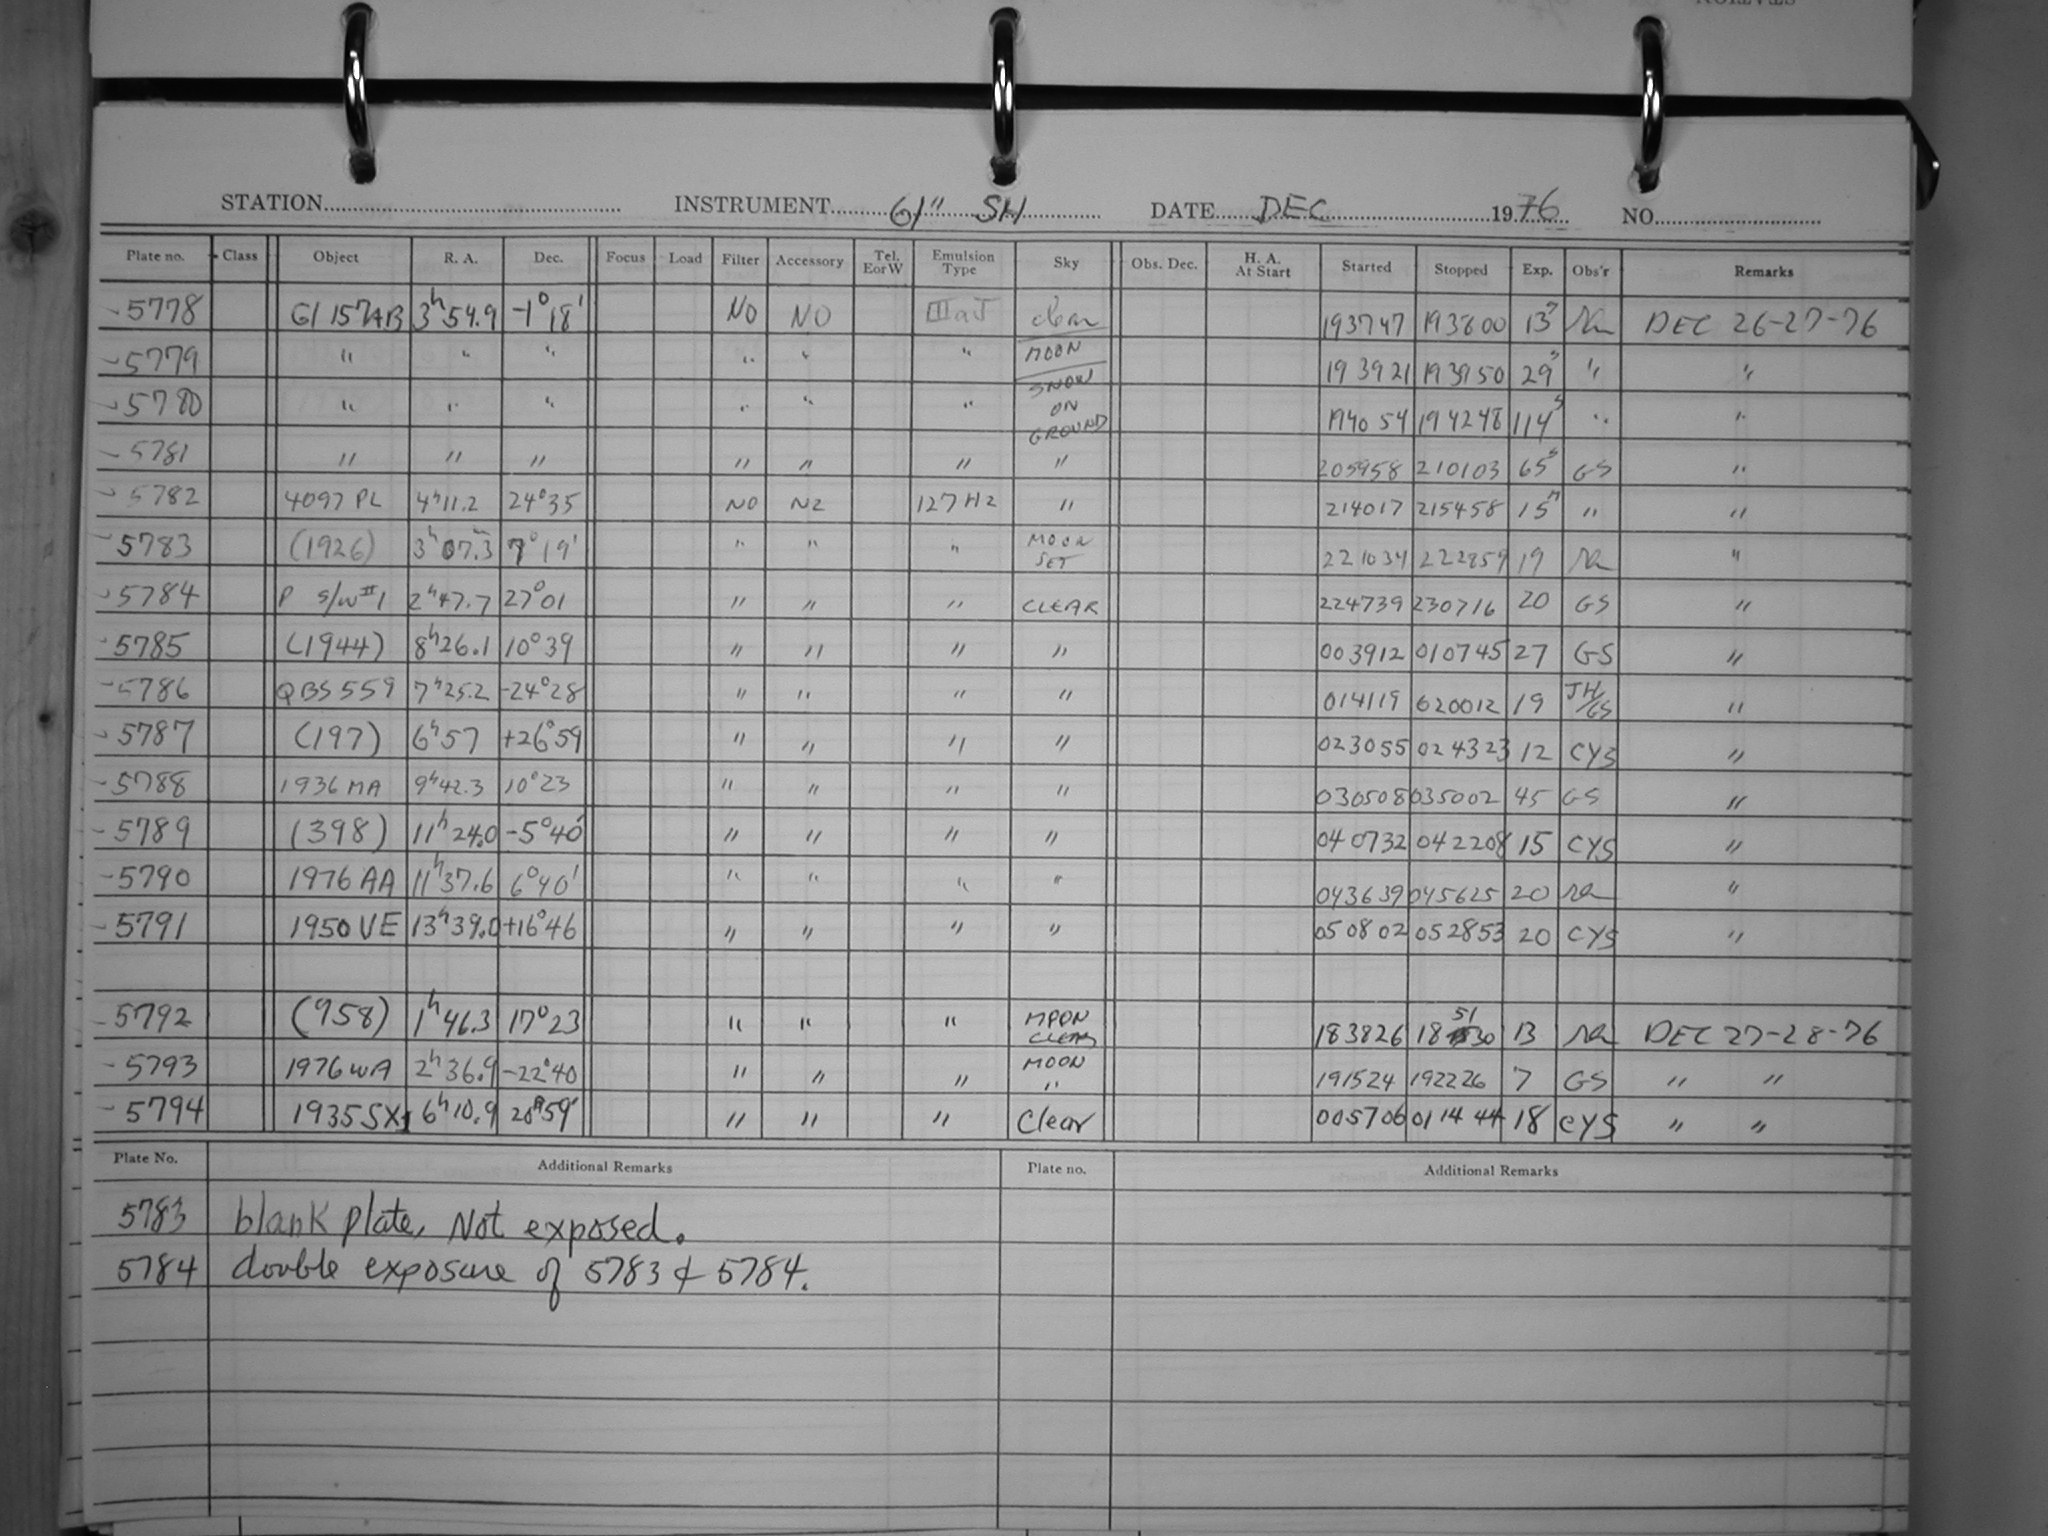 STATION.......... INSTRUMENT.....61" SH..... DATE.....DEC.....1976 NO..........
Plate no. Class Object R. A. Dec. Focus Load Filter Accessory Tel. E or W Emulsion Type Sky Obs. Dec. H. A. At Start Started Stopped Exp. Obs'r Remarks
5778 Gl 157AB 3h54.9 -1°18' NO NO IIIaJ clear 193747 193800 13s DEC 26-27-76
5779 " " " " " " MOON 193921 193950 29s " "
5780 " " " " " " SNOW ON GROUND 194054 194248 114s " "
5781 " " " " " " " 205958 210103 65s GS "
5782 4097 PL 4h11.2 24°35 NO N2 127H2 " 214017 215458 15m " "
5783 (1926) 3h07.3 7°19' " " " MOON SET 221034 222859 19 "
5784 P S/W#1 2h47.7 27°01 " " " CLEAR 224739 230716 20 GS "
5785 (1944) 8h26.1 10°39 " " " " 003912 010745 27 GS "
5786 QBS 559 7h25.2 -24°28 " " " " 014119 020012 19 JH/GS "
5787 (197) 6h57 +26°59 " " " " 023055 024323 12 CYS "
5788 1936 MA 9h42.3 10°23 " " " " 030508 035002 45 GS "
5789 (398) 11h24.0 -5°40' " " " " 040732 042208 15 CYS "
5790 1976 AA 11h37.6 6°40' " " " " 043639 045625 20 "
5791 1950 VE 13h39.0 +16°46 " " " " 050802 052853 20 CYS "
5792 (958) 1h46.3 17°23 " " " MOON CLEAR 183826 185130 13 DEC 27-28-76
5793 1976 WA 2h36.9 -22°40 " " " MOON " 191524 192226 7 GS " "
5794 1935 SX1 6h10.9 20°59' " " " Clear 005706 011444 18 CYS " "
Plate No. Additional Remarks Plate no. Additional Remarks
5783 blank plate, Not exposed.
5784 double exposure of 5783 & 5784.